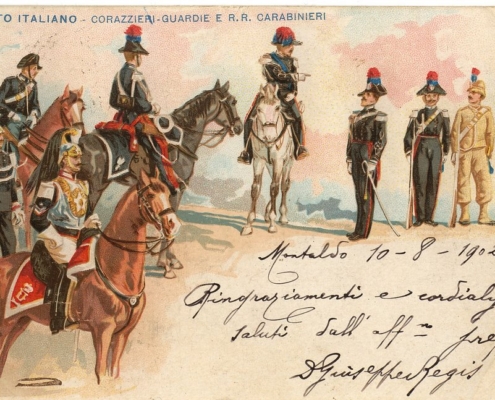 TO ITALIANO - CORAZZIERI-GUARDIE E R.R. CARABINIERI
Montaldo 10-8-190
Ringraziamenti e cordial
saluti dall'aff.mo
D Giuseppe Regis